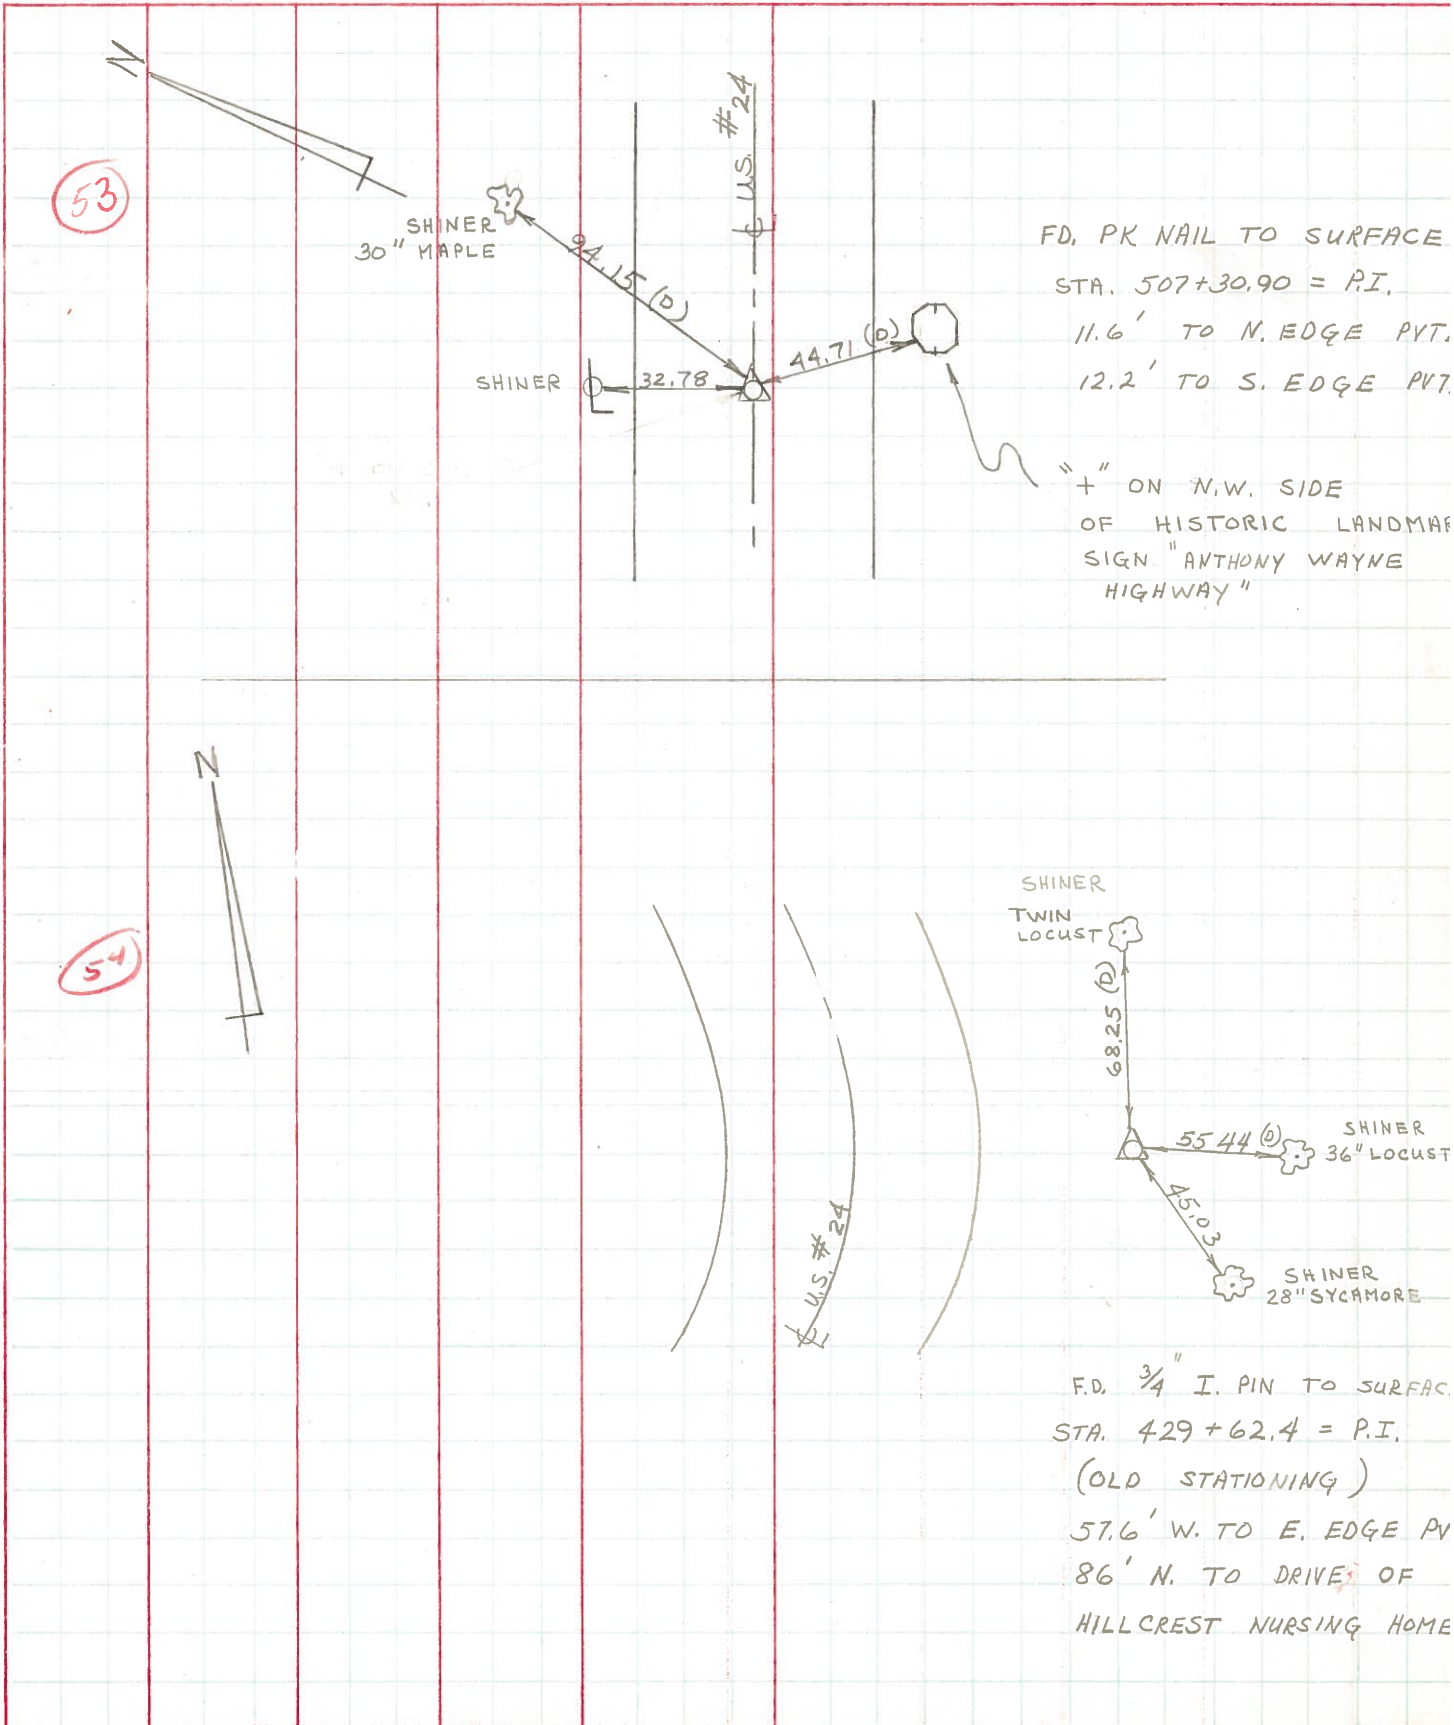 N
53
SHINER
30" MAPLE
94.15 (D)
℄ U.S. #24
SHINER
32.78
44.71 (D)
FD. PK NAIL TO SURFACE
STA. 507+30.90 = P.I.
11.6' TO N. EDGE PVT.
12.2' TO S. EDGE PVT.
"+" ON N.W. SIDE
OF HISTORIC LANDMAR
SIGN "ANTHONY WAYNE
HIGHWAY"
N
54
℄ U.S. #24
SHINER
TWIN
LOCUST
68.25 (D)
55.44 (D)
SHINER
36" LOCUST
45.03
SHINER
28" SYCAMORE
F.D. 3/4" I. PIN TO SURFAC
STA. 429+62.4 = P.I.
(OLD STATIONING)
57.6' W. TO E. EDGE PV
86' N. TO DRIVE OF
HILLCREST NURSING HOME